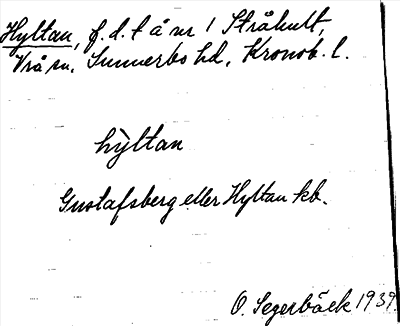 Hyltan, f.d. t å nr 1 Stråhult,
Vrå sn, Sunnerbo hd, Kronob. l.
hỳltan
Gustafsberg eller Hyltan kb.
O. Segerbäck 1939.